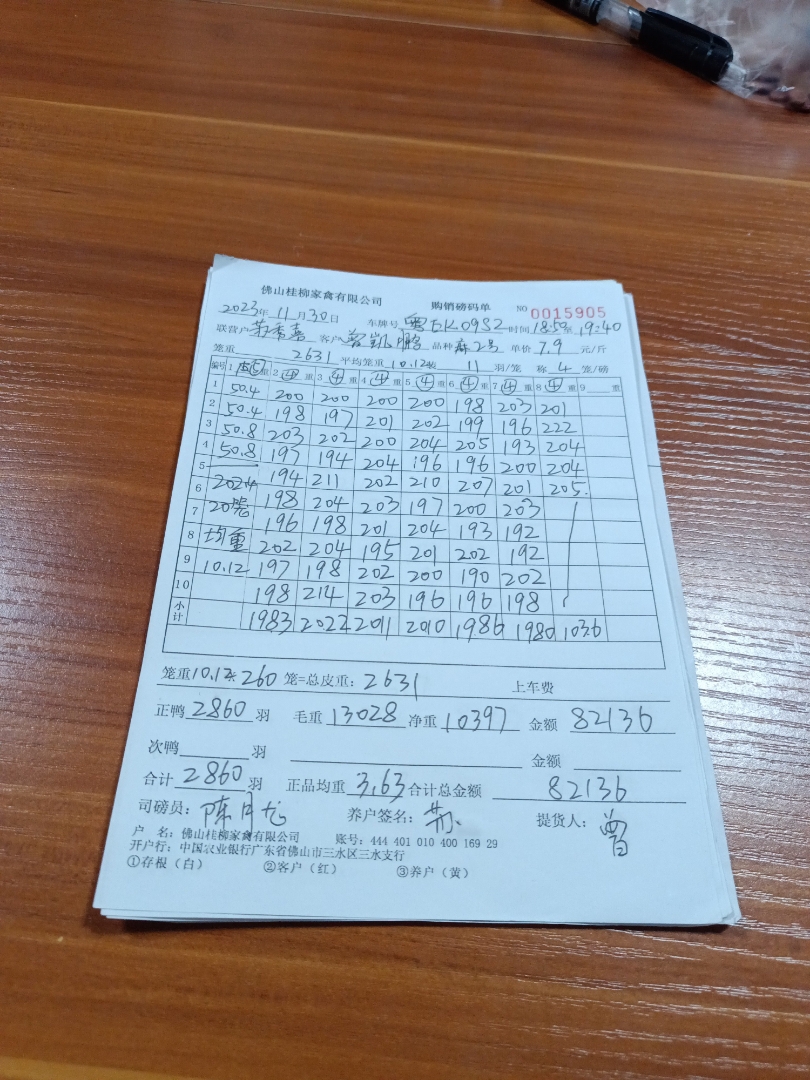 佛山桂柳家禽有限公司 购销磅码单 NO 0015905
2023年 11月30日 车牌号 粤EK09S2 时间 18:50至 19:40
联营户 客户 曾凯鹏 品种 麻2号 单价 7.9 元/斤
笼重 2631 平均笼重 10.12 装 11 羽/笼 称 4 笼/磅
编号 1 皮⑤ 重 2 ④ 重 3 ④ 重 4 ④ 重 5 ④ 重 6 ④ 重 7 ④ 重 8 ④ 重 9 重
1 50.4 200 200 200 200 198 203 201
2 50.4 198 197 201 202 199 196 222
3 50.8 203 202 200 204 205 193 204
4 50.8 197 194 204 196 196 200 204
5 — 194 211 202 210 207 201 205.
6 202.4 198 204 203 197 200 203
7 20笼 196 198 201 204 193 192
8 均重 202 204 195 201 202 192
9 10.12 197 198 202 200 190 202
10 198 214 203 196 196 198
小计 1983 2022 2011 2010 1986 1980 1036
笼重 10.12 × 260 笼=总皮重: 2631 上车费
正鸭 2860 羽 毛重 13028 净重 10397 金额 82136
次鸭 羽 金额
合计 2860 羽 正品均重 3.63 合计总金额 82136
司磅员: 陈月龙 养户签名: 提货人: 曾
户 名: 佛山桂柳家禽有限公司 账号: 444 401 010 400 169 29
开户行: 中国农业银行广东省佛山市三水区三水支行
①存根（白） ②客户（红） ③养户（黄）